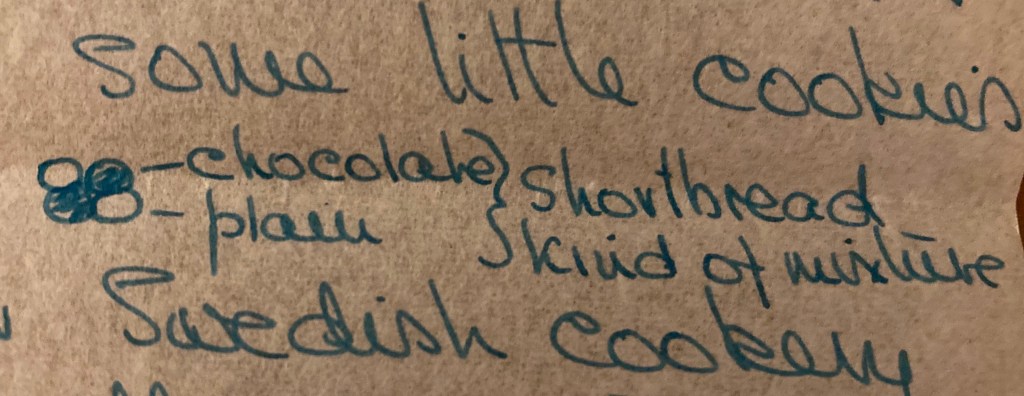 some little cookie's
-chocolate} shortbread
-plain } kind of mixture
Swedish cookery